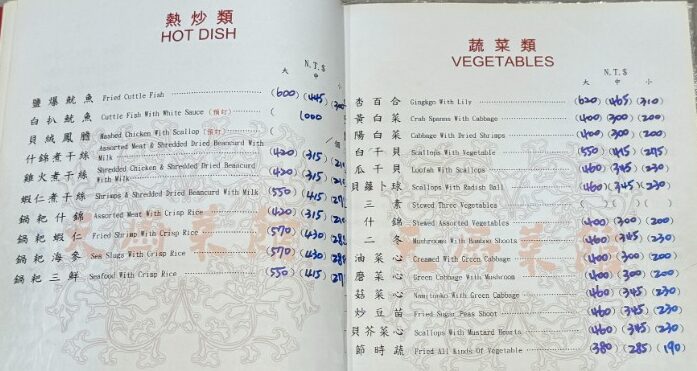 熱炒類
HOT DISH
N.T.$
大 中 小
鹽爆魷魚 Fried Cuttle Fish (600) (445)
白扒魷魚 Cuttle Fish With White Sauce (預訂) ( 1000
貝絨鳳膽 Mashed Chicken With Scallop (預訂) ( /個
什錦煮干絲 Assorted Meat & Shredded Dried Beancurd With Milk (420) (315)
雞火煮干絲 Shredded Chicken & Shredded Dried Beancurd With Milk (420) (315)
蝦仁煮干絲 Shrimps & Shredded Dried Beancurd With Milk (550) (415)
鍋粑什錦 Assorted Meat With Crisp Rice (420) (315)
鍋粑蝦仁 Fried Shrimp With Crisp Rice (570) (430)
鍋粑海參 Sea Slugs With Crisp Rice (570) (430)
鍋粑三鮮 Seafood With Crisp Rice (550) (415)
蔬菜類
VEGETABLES
N.T.$
大 中 小
杏百合 Gingkgo With Lily (620) (465) (310)
黃白菜 Crab Spanns With Cabbage (400) (300) (200)
陽白菜 Cabbage With Dried Shrimps (400) (300) (200)
白干貝 Scallops With Vegetable (550) (415) (275)
瓜干貝 Loofah With Scallops (460) (345) (230)
貝蘿卜球 Scallops With Radish Ball (460) (345) (230)
三素 Stewed Three Vegetables ( ) ( ) ( )
什錦 Stewed Assorted Vegetables (400) (300) (200)
二冬 Mushrooms With Bamboo Shoots (460) (345) (230)
油菜心 Creamed With Green Cabbage (400) (300) (200)
磨菜心 Green Cabbage With Mushroom (400) (300) (200)
菇菜心 Namitonko With Green Cabbage (460) (345) (230)
炒豆苗 Fried Sugar Peas Shoot (460) (345) (230)
貝芥菜心 Scallops With Mustard Hearts (460) (345) (230)
節時蔬 Fried All Kinds Of Vegetable (380) (285) (190)